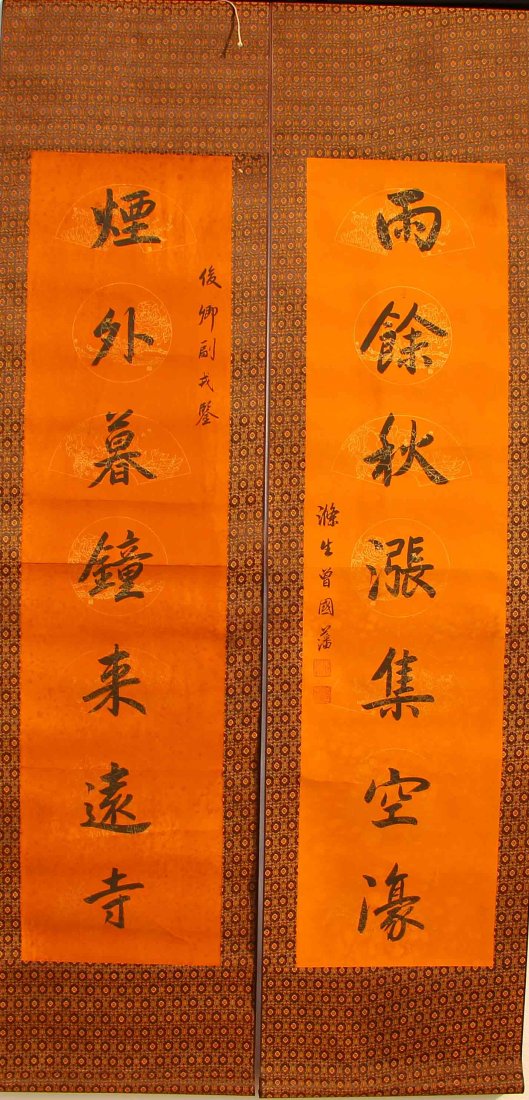 雨餘秋漲集空濠
滌生曾國藩
俊卿副戎鑒
煙外暮鐘来遠寺